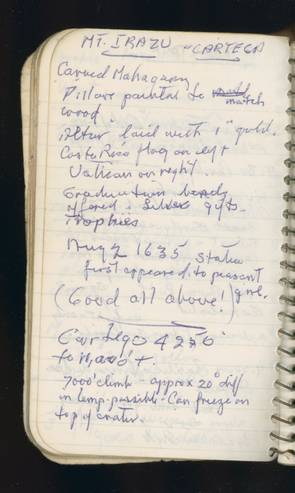 MT. IRAZU - CARTEGA
Carved Mahogany
Pillars painted to match
wood.
Altar laid with 1" gold.
Costa Rica flag on left
Vatican on right.
Graduation bands
offered. Silver gifts.
Trophies
Aug 2 1635 Statue
first appeared to peasant
girl.
(Good all above!)
Cartego 4270'
to
7000' climb - approx 20° diff
in temp. possible - Can freeze on
top of crater.